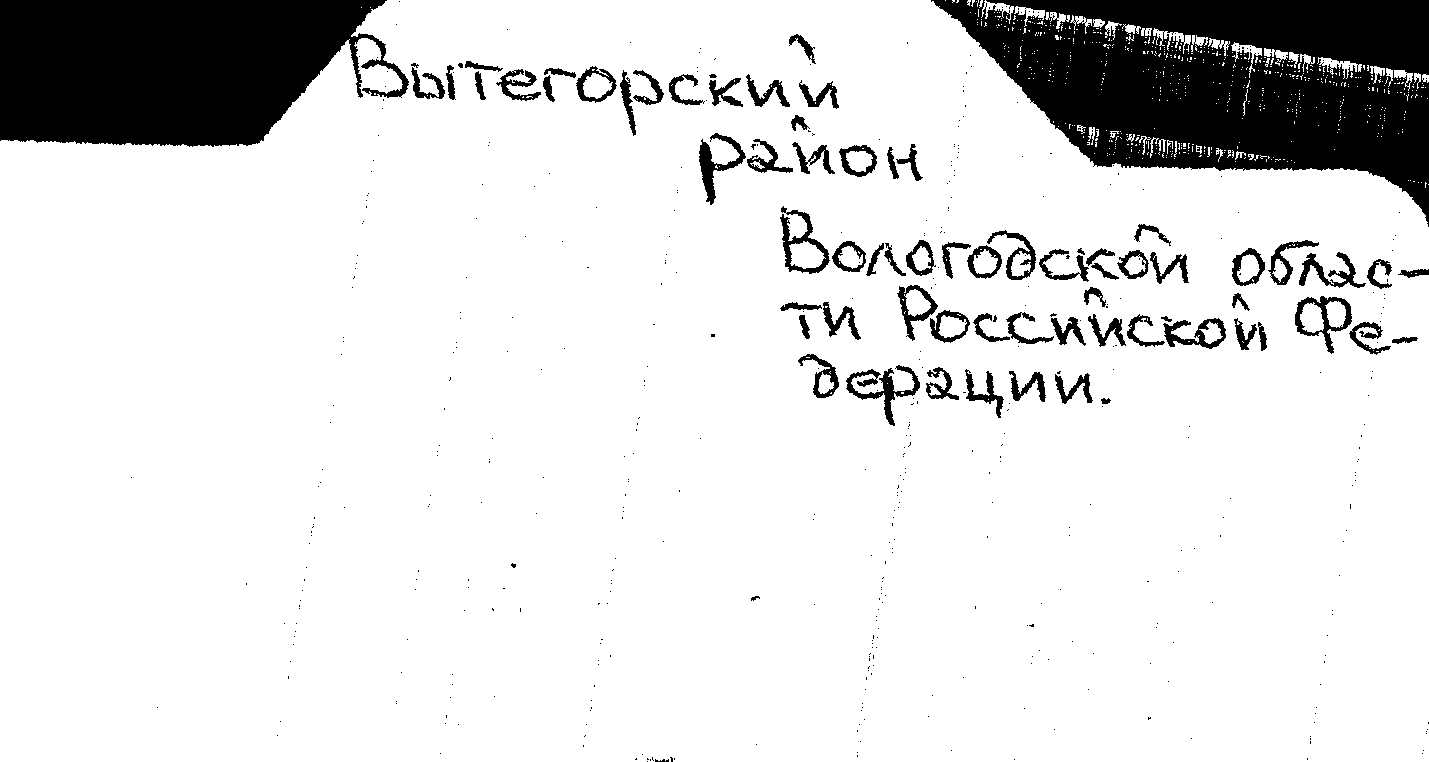 Вытегорский
район
Вологодской облас-
ти Российской Фе-
дерации.